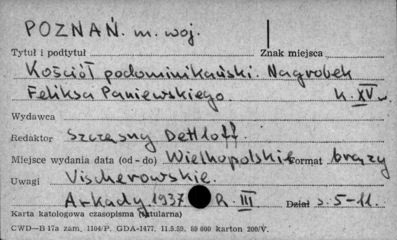 POZNAŃ. m. woj.
Tytuł i podtytuł Znak miejsca
Kościół podominikański. Nagrobek
Feliksa Paniewskiego. k. XV w.
Wydawca
Redaktor Szczęsny Dettloff.
Miejsce wydania data (od - do) Wielkopolskie Format brązy
Uwagi Vischerowskie.
Arkady 1937 R. III Dział s. 5-11.
Karta katologowa czasopisma (tytularna)
CWD—B 17a zam. 1104/P. GDA-1477. 11.5.50. 60 000 karton 200/V.